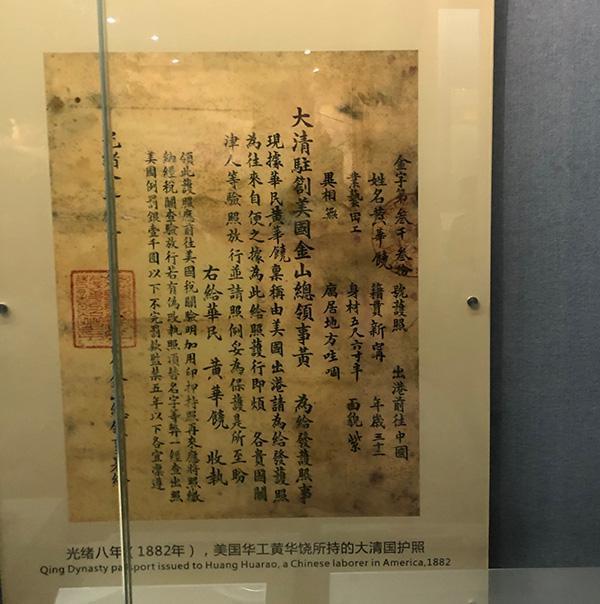 金字第叁千叁拾 號護照 出港前往中國
姓名黄華饒 籍貫新寧 年歲三十一
業藝田工 身材五尺六寸半 面貌紫
異相無 寓居地方
大清駐劄美國金山總領事黃 為給發護照事
現據華民黄華饒稟稱由美國出港請為給發護照
為往來自便之據為此給照護行即煩 各貴國關
津人等驗照放行並請照例妥為保護是所至盼
右給華民 黄華饒 收執
領此護照應前往美國稅關驗明加用印押持照再來應將照繳
納經稅關查驗放行若有偽改執照頂替名字等弊一經查出照
美國例罰銀壹千圓以下不完罰款監禁五年以下各宜凜遵
光緒
光绪八年（1882年），美国华工黄华饶所持的大清国护照
Qing Dynasty passport issued to Huang Huarao, a Chinese laborer in America,1882